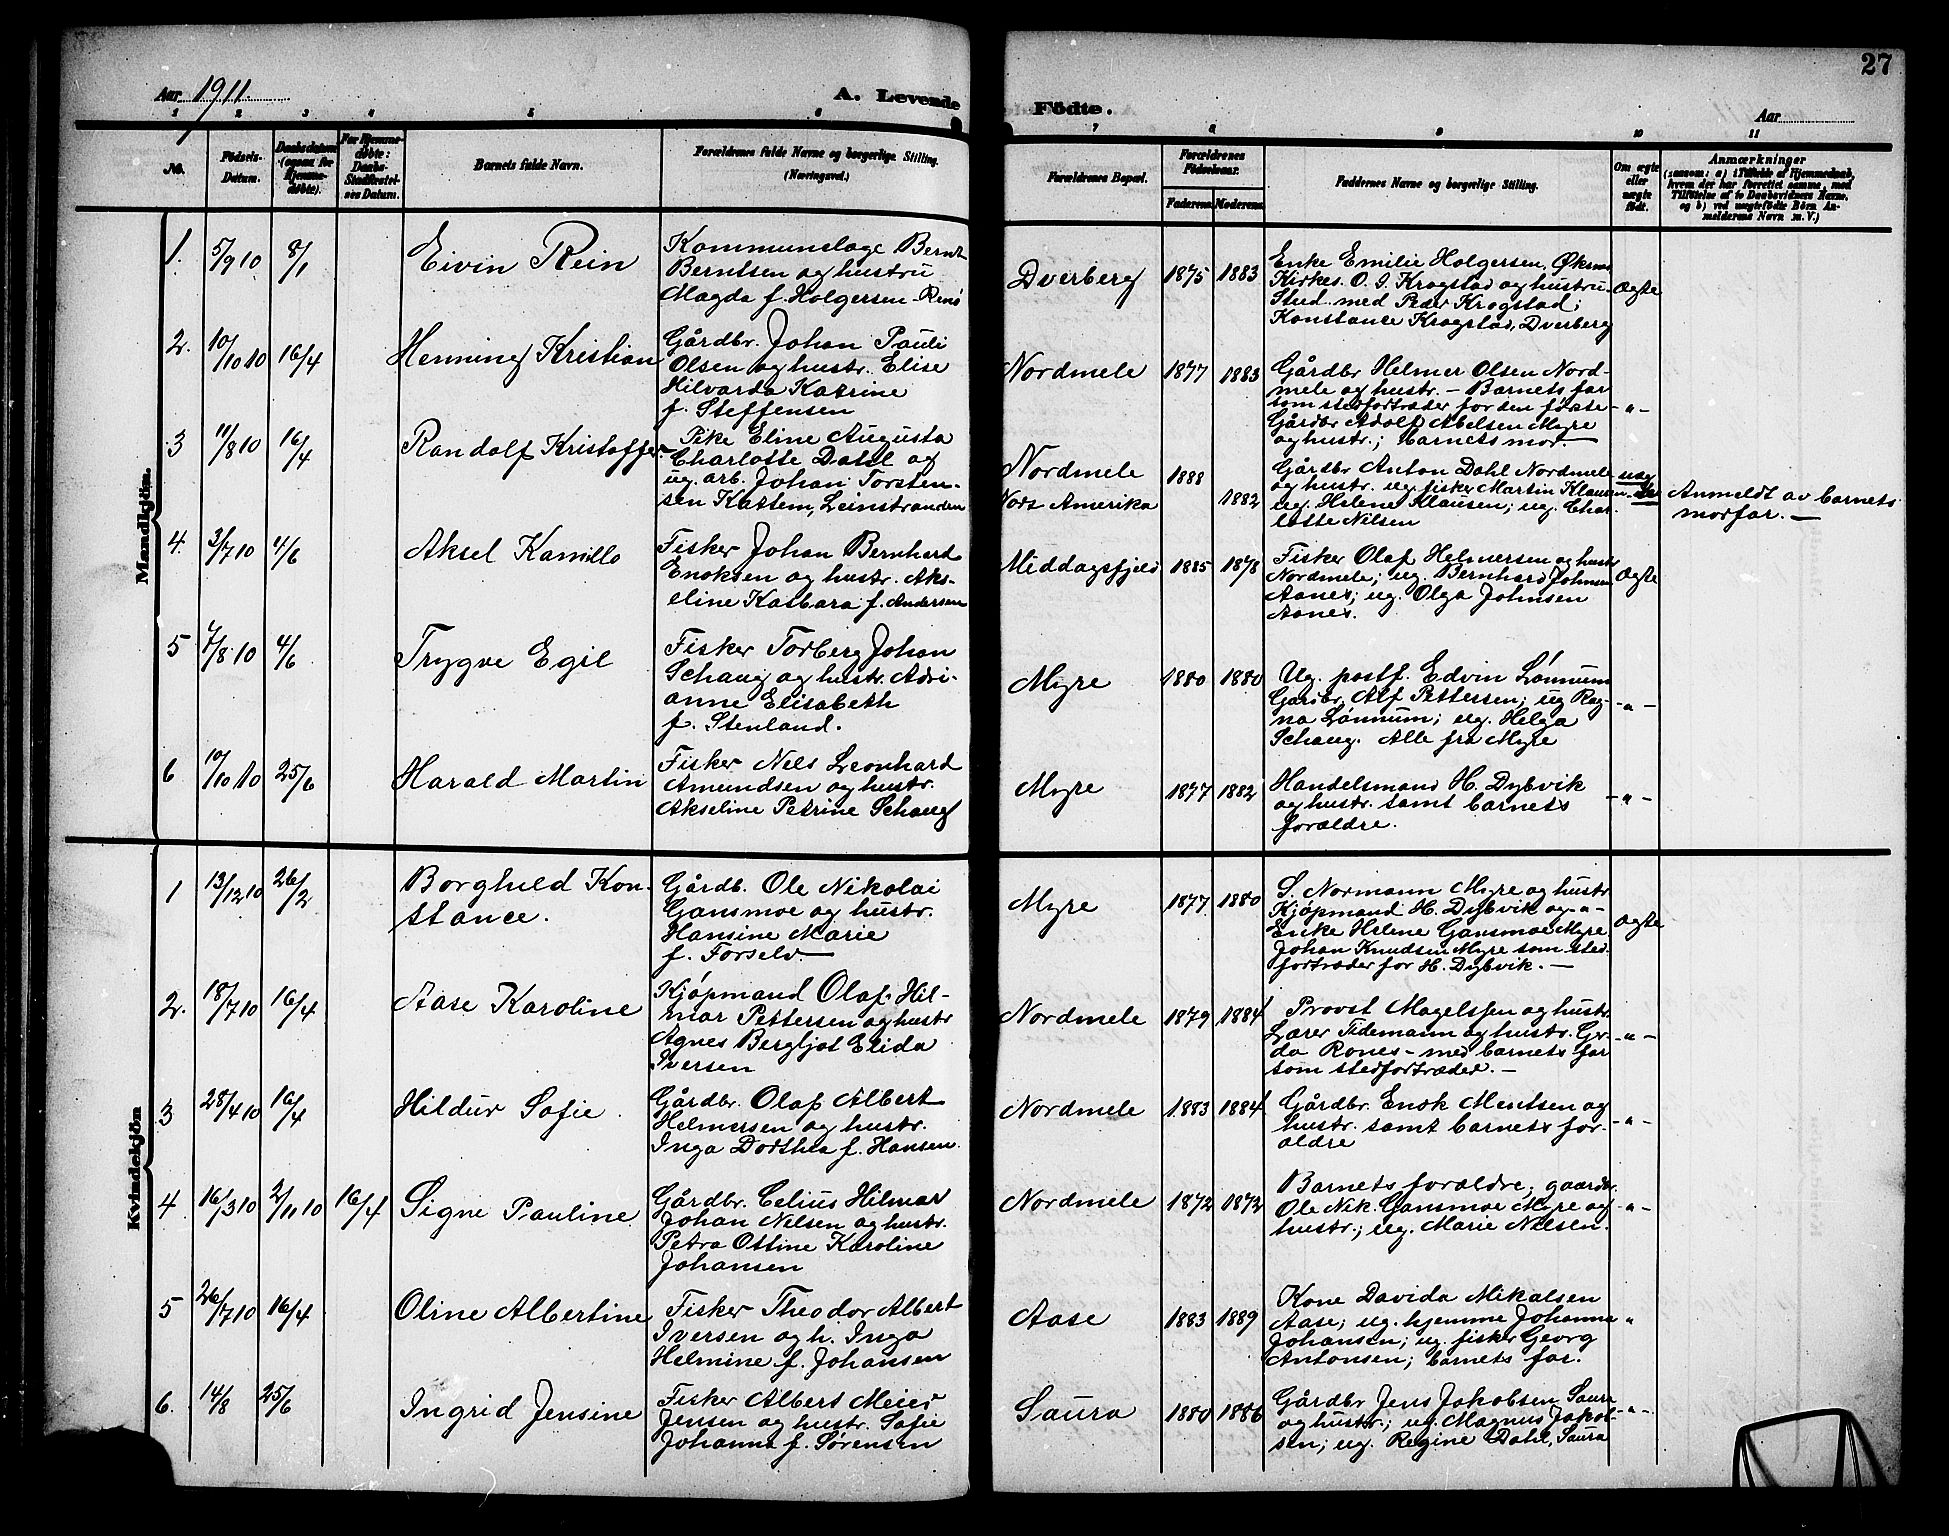 27
Aar 1911.
A. Levende
Födte.
Aar
1 2 3 4 5 6
7 8 9 10 11
No.
Födsels-
Datum.
Daabsdatum
(ogsaa for
Hjemme-
døbte).
For Hjemme-
døbte:
Daabs-
Stadfæstel-
ses Datum.
Barnets fulde Navn.
Forældrenes fulde Navne og borgerlige Stilling.
(Næringsvei.)
Forældrenes Bopæl.
Forældrenes
Födselsaar.
Faderens.
Moderens.
Faddernes Navne og borgerlige Stilling.
Om ægte
eller
uægte
født.
Anmærkninger
(saasom: a) i Tilfælde af Hjemmedaab,
hvem der har forrettet samme, med
Tilföielse af to Daabsvidners Navne.
og b) ved uægtefödte Börn An-
melderens Navn m. V.)
Mandkjön.
1. 5/9 10 8/1 Eivin Rein
Kommunelæge Bernt
Berntsen og hustru
Magda f. Holgersen-Reinö
Dverberg 1875 1883
Enke Emilie Holgersen, Øksnes
Kirkes. O. J. Krogstad og hustru
Stud. med Peder Krogstad;
Konstance Krogstad, Dverberg
Ægte
2. 10/10 10 16/4 Henning Kristian
Gårdbr. Johan Pauli
Olsen og hustr. Elise
Hilvarda Katrine
f. Steffensen
Nordmele 1877 1883
Gårdbr Helmer Olsen Nord-
mele og hustr. - Barnets far
som stedfortræder for den første -
Gårdbr Adolf Abelsen Myre
og hustr.; barnets mor.
-"-
3 11/8 10 16/4 Randolf Kristoffer
Pike Eline Augusta
Charlotte Dahl og
ug. arb. Johan Torsten-
sen Kattem, Leinstranden
Nordmele 1888
Nord Amerika 1882
Gårdbr Anton Dahl Nordmele
og hustr. ug. fisker Martin Klausen
ug. Helene Klausen; ug. Char-
lotte Nilsen
uæg-
te
Anmeldt av barnets
morfar. -
4. 3/7 10 4/6 Aksel Kamillo
Fisker Johan Bernhard
Enoksen og hustr. Aks-
eline Katbara f. Andersen
Middagsfjeld 1885 1878
Fisker Olaf Helmersen og hustr
Nordmele; ug. Bernhard Johnsen
Aanes; ug. Olga Johnsen
Aanes.
Ægte
5 7/8 10 4/6 Trygve Egil
Fisker Torberg Johan
Schaug og hustr. Adri-
anne Elisabeth
f. Stenland.
Myre 1880 1880
Ug. postf. Edvin Lønnum
Gardbr. Alf Pettersen; ug Rag-
na Lønnum; ug. Helga
Schaug. Alle fra Myre
-"-
6 10/10 10 25/6 Harald Martin
Fisker Nils Leonhard
Amundsen og hustr.
Akseline Petrine Schaug
Myre 1877 1882
Handelsmand H. Dybvik
og hustr. samt barnets
forældre.
-"-
Kvindekjön
1 13/12 10 26/2 Borghild Kon-
stance.
Gårdb. Ole Nikolai
Gansmoe og hustr.
Hansine Marie
f. Forselv
Myre 1877 1880
S. Normann Myre og hustr
Kjøpmand H. Dybvik og -"-
Enke Helene Gansmoe Myre
Johan Knudsen Myre som sted-
fortræder for H. Dybvik. -
Ægte
2. 18/7 10 16/4 Aase Karoline
Kjøpmand Olaf Hil-
mar Pettersen og hustr
Agnes Bergljot Elida
Iversen
Nordmele 1879 1884
Provst Magelssen og hustr.
Lærer Tidemann og hustr. Ger-
da Rones - med barnets far
som stedfortræder. -
-"-
3 28/4 10 16/4 Hildur Sofie
Gårdbr. Olaf Albert
Helmersen og hustr.
Inga Dorthea f. Hansen
Nordmele 1883 1884
Gårdbr. Enok Mentsen og
hustr. samt barnets for-
ældre
-"-
4 16/3 10 2/11 10 16/4 Signe Pauline
Gårdbr. Celius Hilmar
Johan Nilsen og hustr.
Petra Ottine Karoline
Johansen
Nordmele 1872 1872
Barnets forældre; gaardbr.
Ole Nik. Gansmoe Myre og
hustr.; ug. Marie Nilsen.
-"-
5 26/7 10 16/4 Oline Albertine
Fisker Theodor Albert
Iversen og h. Inga
Helmine f. Johansen
Aase 1883 1889
Kone Davida Mikalsen
Aase; ug. hjemme Johanna
Johansen; ug. fisker Georg
Antonsen; barnets far.
"
6. 14/8 25/6 Ingrid Jensine
Fisker Albert Meier
Jensen og hustr. Sofie
Johanna f. Sørensen
Saura 1880 1886
Gårdbr Jens Jakobsen Saura
og hustr.; ug. Magnus Jakob-
sen; ug. Regine Dahl, Saura
-"-